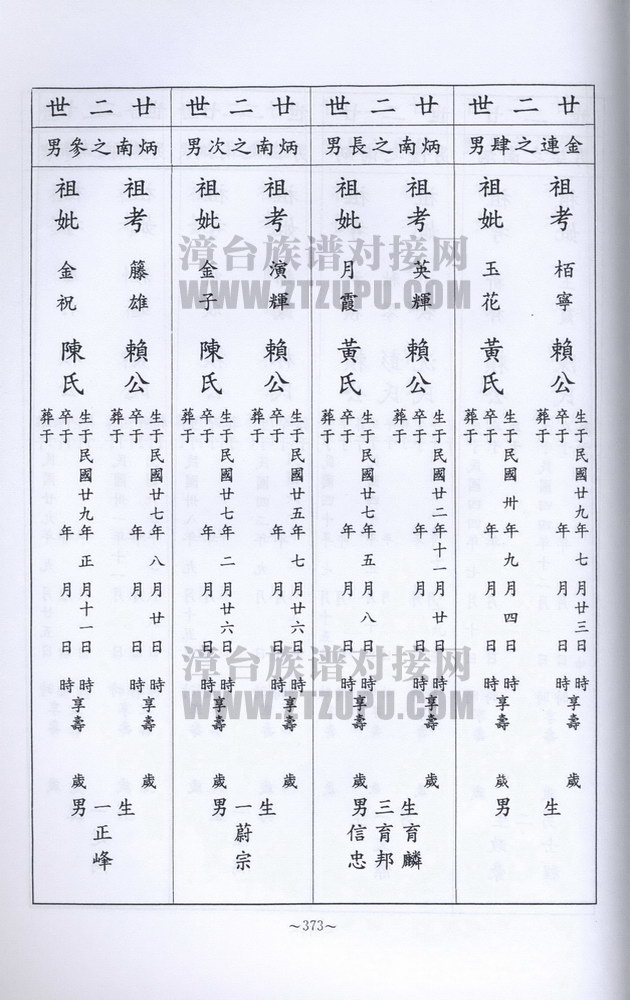 廿二世
金連之肆男
祖考 栢寧 賴公
生于民國廿九年七月廿三日時享壽歲
卒于 年 月 日 時
葬于
祖妣 玉花 黃氏
生于民國卅年九月四日時享壽歲
卒于 年 月 日 時
葬于
生 男
廿二世
炳南之長男
祖考 英輝 賴公
生于民國廿二年十一月廿日時享壽歲
卒于 年 月 日 時
葬于
祖妣 月霞 黃氏
生于民國廿七年五月八日時享壽歲
卒于 年 月 日 時
葬于
生三男
育麟
育邦
信忠
廿二世
炳南之次男
祖考 演輝 賴公
生于民國廿五年七月廿六日時享壽歲
卒于 年 月 日 時
葬于
祖妣 金子 陳氏
生于民國廿七年二月廿六日時享壽歲
卒于 年 月 日 時
葬于
生一男
蔚宗
廿二世
炳南之參男
祖考 籐雄 賴公
生于民國廿七年八月廿日時享壽歲
卒于 年 月 日 時
葬于
祖妣 金祝 陳氏
生于民國廿九年正月十一日時享壽歲
卒于 年 月 日 時
葬于
生一男
正峰
~373~
漳台族谱对接网
WWW.ZTZUPU.COM
漳台族谱对接网
WWW.ZTZUPU.COM